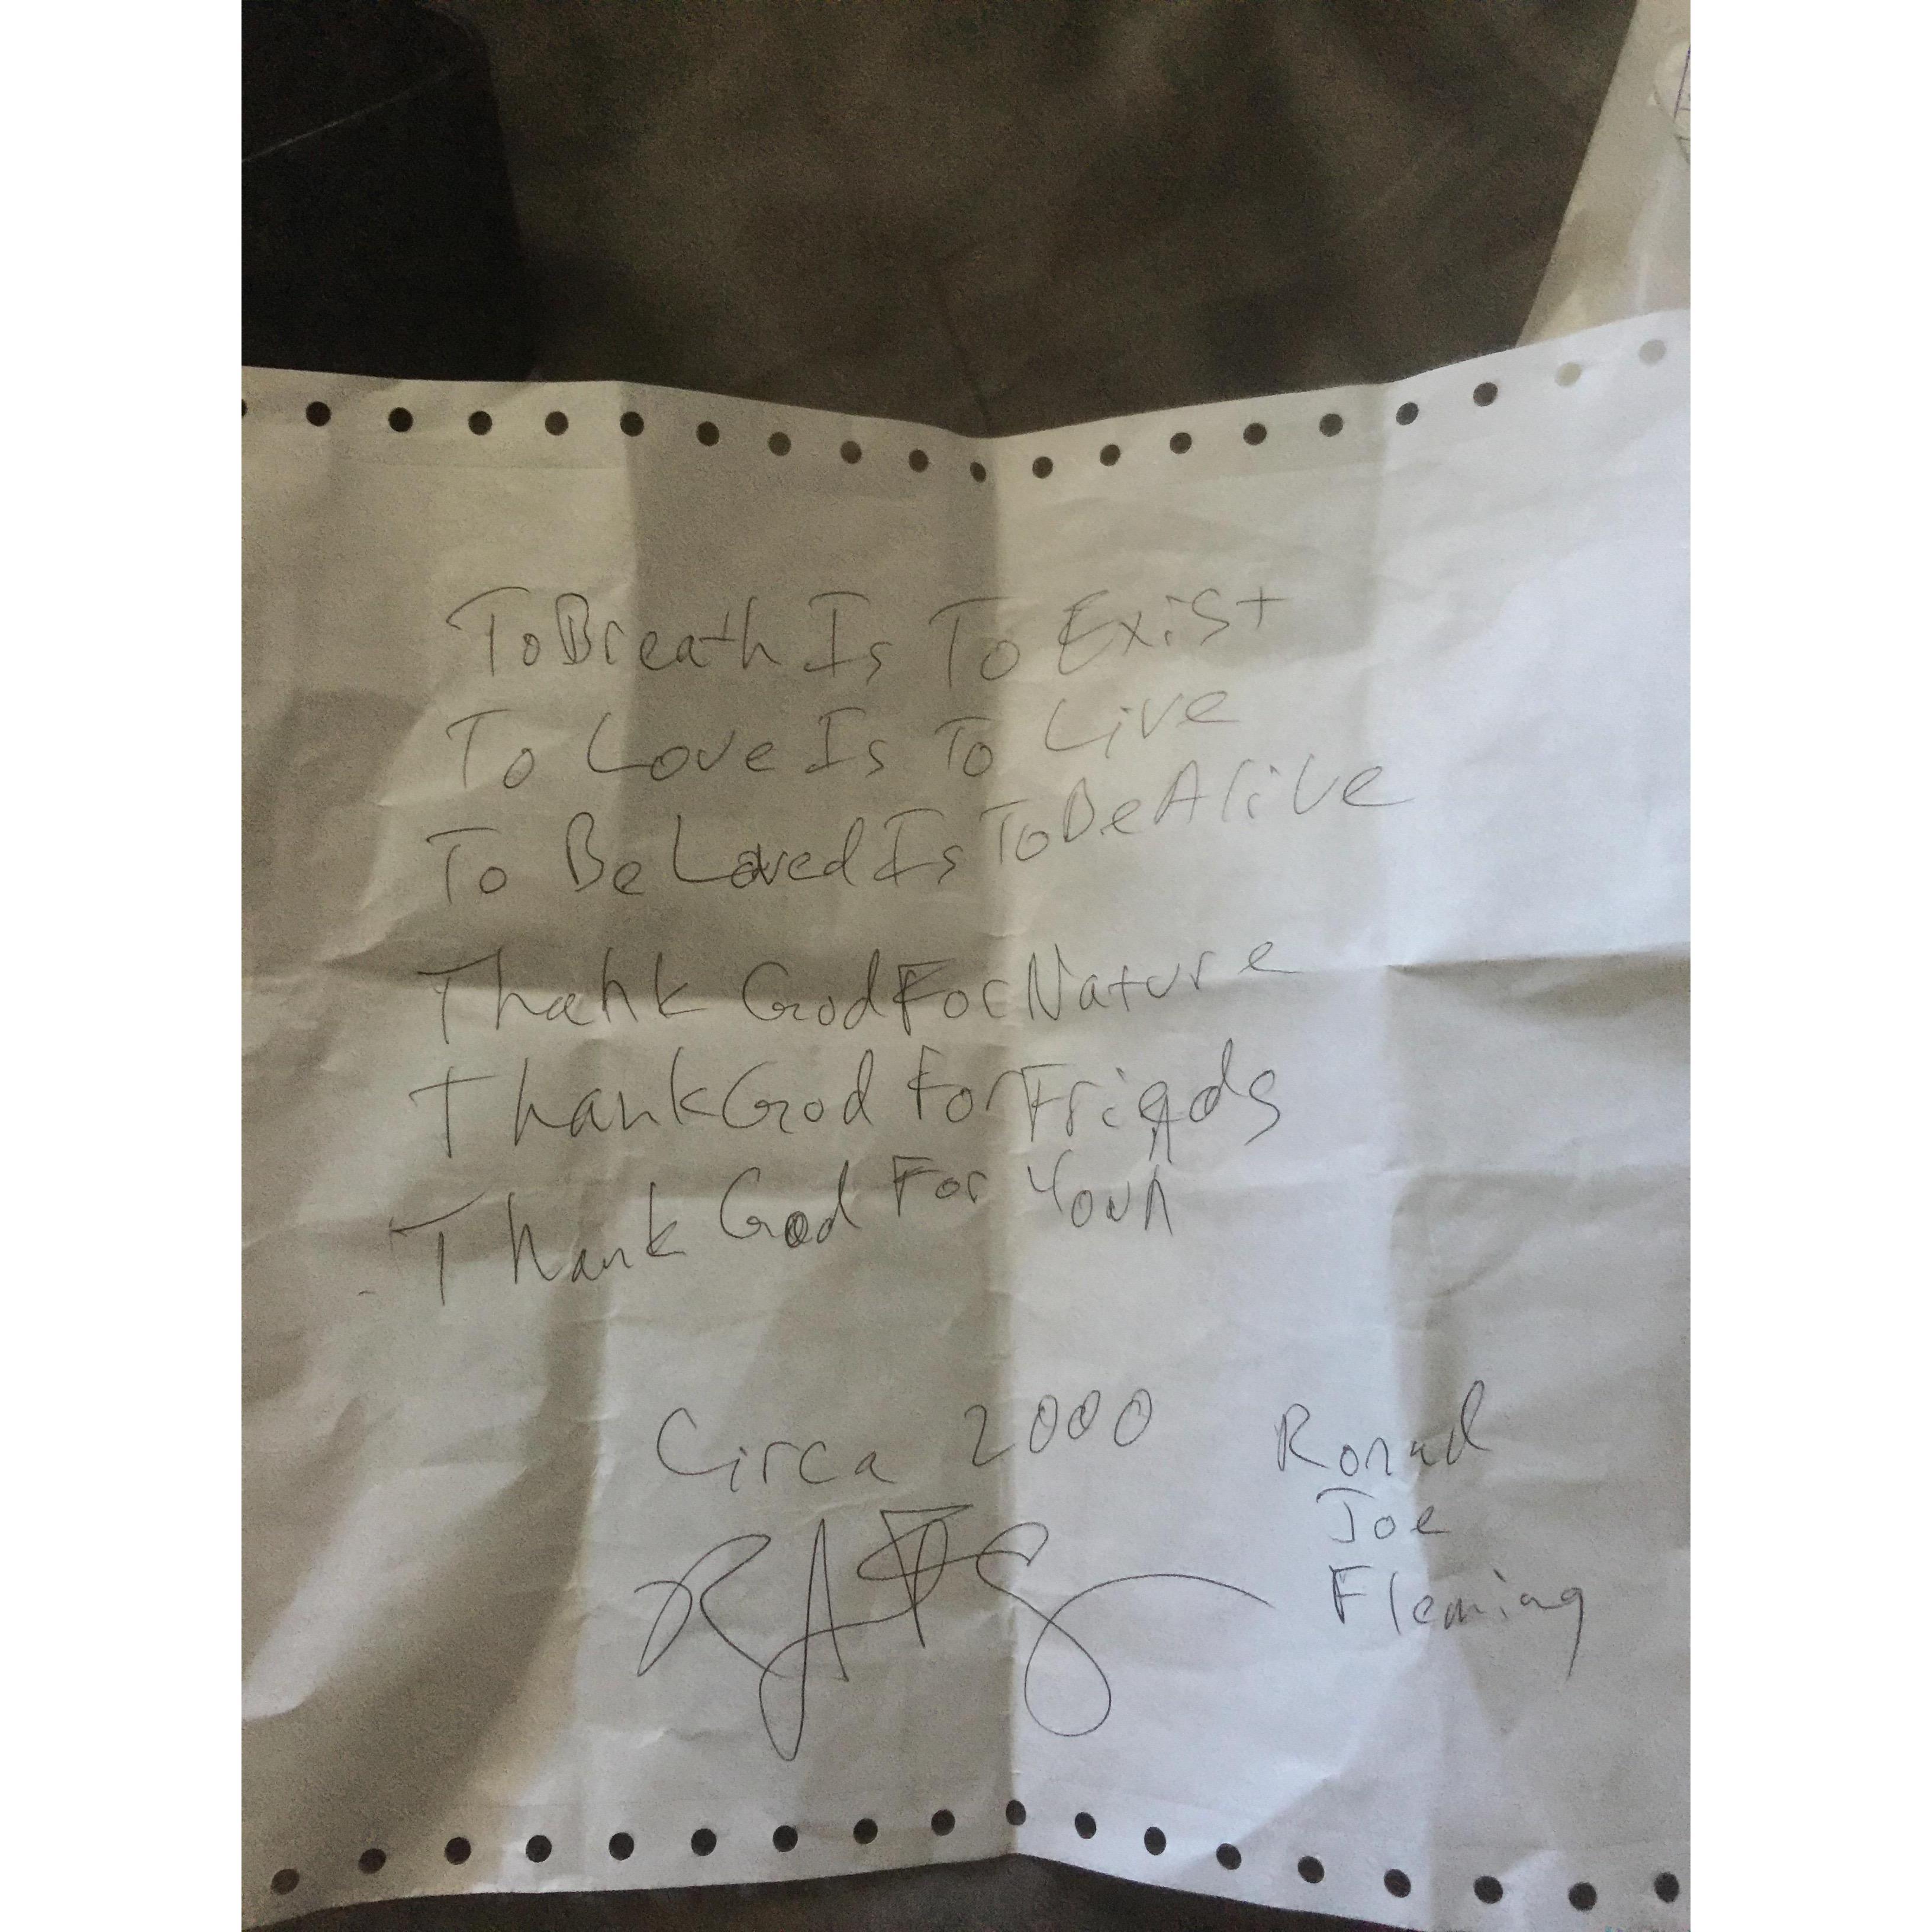 To Breath Is To Exist
To Love Is To Live
To Be Loved Is To Be Alive
Thank God For Nature
Thank God For Friends
Thank God For You
Circa 2000
Ronald
Joe
Fleming